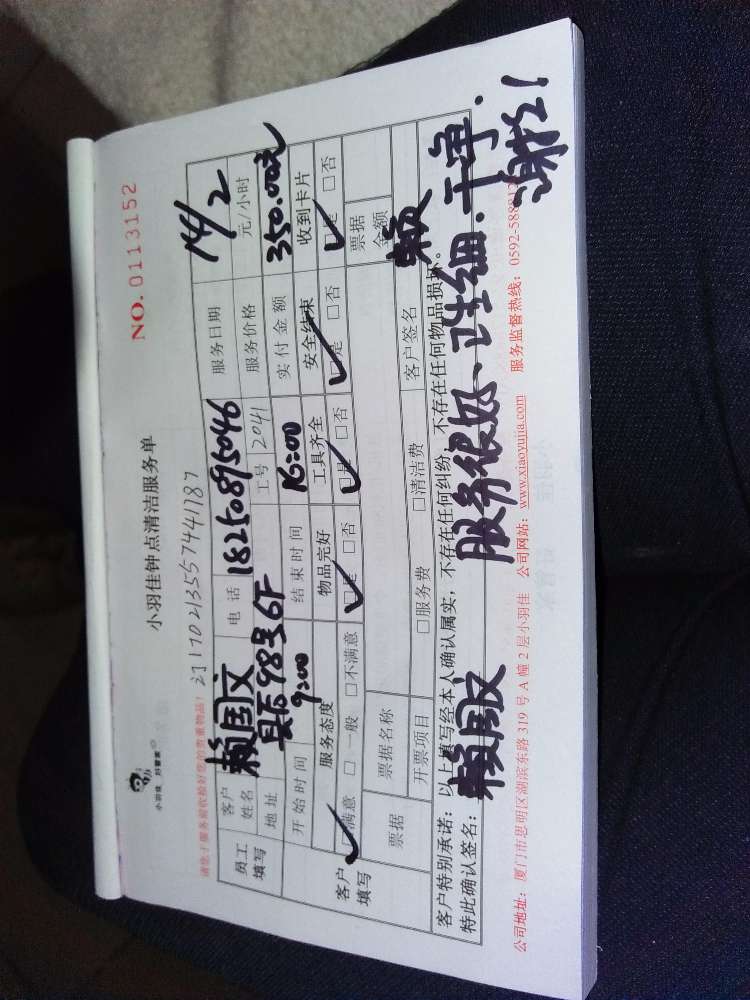 小羽佳 好管家
小羽佳钟点清洁服务单
NO. 0113152
请您于服务前收捡好您的贵重物品！ 231170213557441787
员工填写 客户姓名 赖国文 电话 18250895046 服务日期 14/2
地址 县后98号6F 工号 2041 服务价格 元/小时
开始时间 9:00 结束时间 16:00 实付金额 350.00元
客户填写 服务态度 物品完好 工具齐全 安全结束 收到卡片
☑满意 □一般 □不满意 ☑是 □否 ☑是 □否 ☑是 □否 ☑是 □否
票据 票据名称 票据金额
开票项目 □服务费 □清洁费 客户签名 赖
客户特别承诺：以上填写经本人确认属实，不存在任何纠纷，不存在任何物品损坏。
特此确认签名：赖国文 服务很好、仔细.干净.
谢谢!
公司地址：厦门市思明区湖滨东路 319 号 A 幢 2 层小羽佳 公司网站：www.xiaoyujia.com 服务监督热线：0592-5888